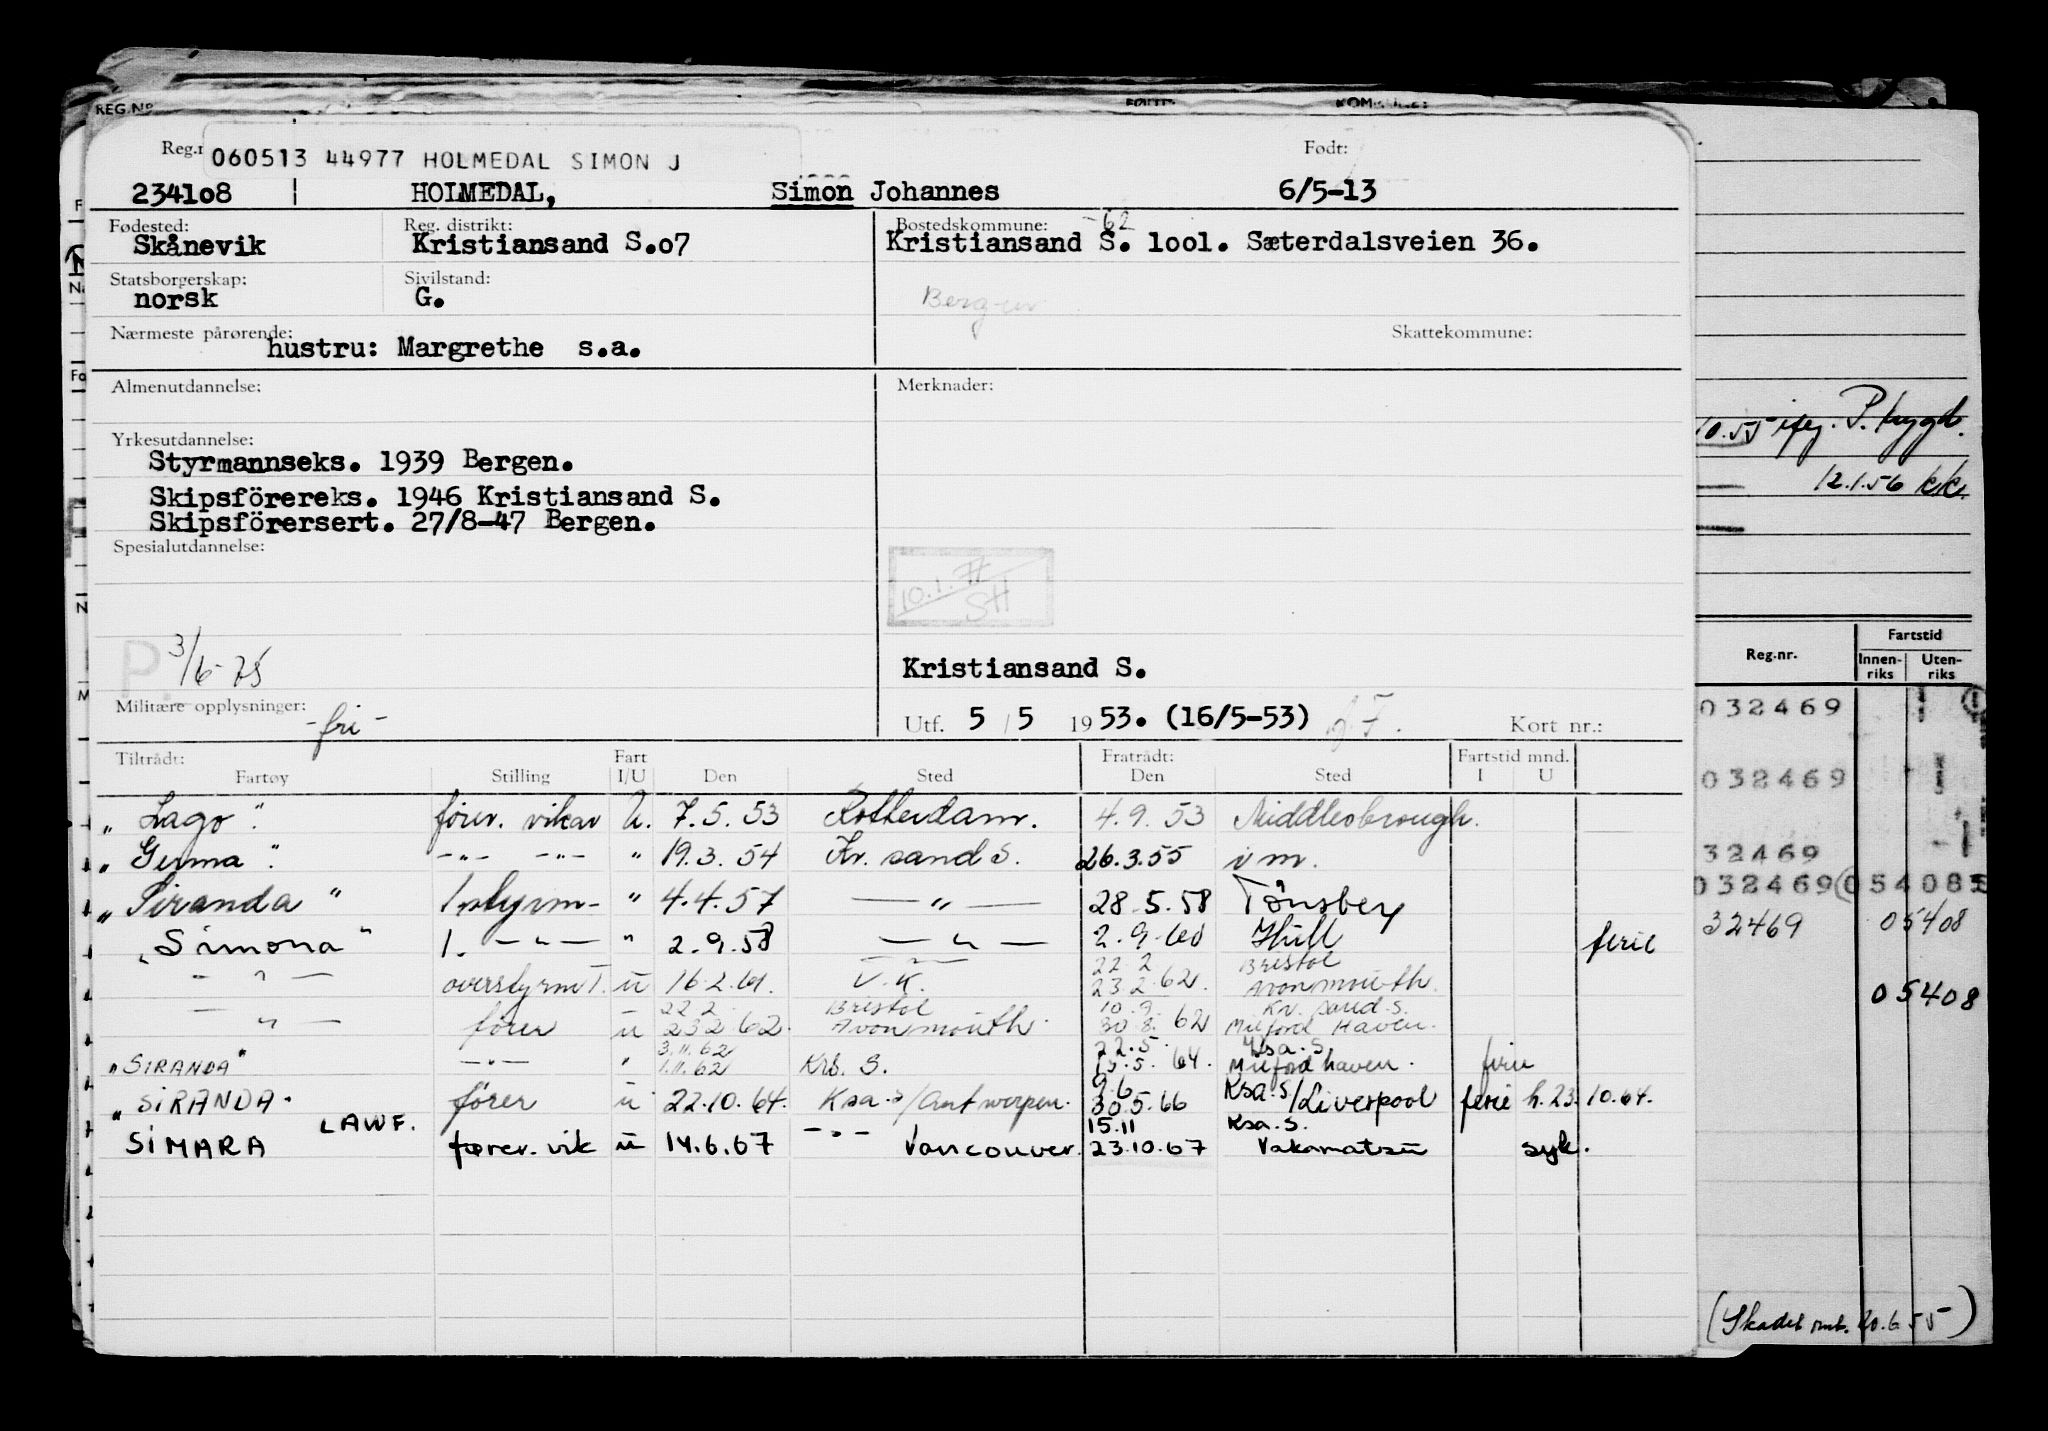 REG. Nº
Reg.nr
060513 44977 HOLMEDAL SIMON J
Født:
234108 HOLMEDAL, Simon Johannes 6/5-13
Fødested: Reg. distrikt: Bostedskommune: -62
Skånevik Kristiansand S.o7 Kristiansand S. lool. Sæterdalsveien 36.
Statsborgerskap: Sivilstand:
norsk G.
Bergen
Nærmeste pårørende: Skattekommune:
hustru: Margrethe s.a.
Almenutdannelse: Merknader:
Yrkesutdannelse:
Styrmannseks. 1939 Bergen.
Skipsförereks. 1946 Kristiansand S.
Skipsförersert. 27/8-47 Bergen.
Spesialutdannelse:
10.1.77
SH
P. 3/6-75
Kristiansand S.
Militære opplysninger: -fri-
Utf. 5 / 5 1953. (16/5-53) Kort nr.:
Tiltrådt: Fart Fratrådt: Fartstid mnd.
Fartøy Stilling I/U Den Sted Den Sted I U
"Lago". förer. vikar U. 7.5.53 Rotterdam. 4.9.53 Middlesbrough.
"Germa". -"- -"- " 19.3.54 Kr. sand S. 26.3.55 v m.
"Siranda" 1 styrm- " 4.4.57 — " — 28.5.58 Tönsberg
"Simona" 1. — " — " 2.9.58 — " — 2.9.60 Hull ferie
22.2 Bristol
- " - overstyrm u 16.2.61. U.K. 23.2.62. Avonmouth.
22.2 Bristol 10.9. Kr. sand S.
- " - förer u 23.2.62. Avonmouth. 30.8.62 Milford Haven.
3.11.62 22.5. Ksa. S.
"SIRANDA" -"- " 1.11.62 Krs. S. 15.5.64. Milford haven. ferie
9.6
"SIRANDA. förer u 22.10.64. Ksa. S/Antwerpen. 30.5.66 Ksa. S/Liverpool ferie h. 23.10.64.
LAWF. 15.11 Ksa. S.
SIMARA fører. vik u 14.6.67 -"- Vancouver. 23.10.67 Vakamatsu syk.
10.55 P. trygd.
12.1.56 kk.
Reg.nr. Fartstid
Innen-riks Uten-riks
032469
032469
32469
032469 05408
32469 05408
05408
(Skadet 20.6.55)